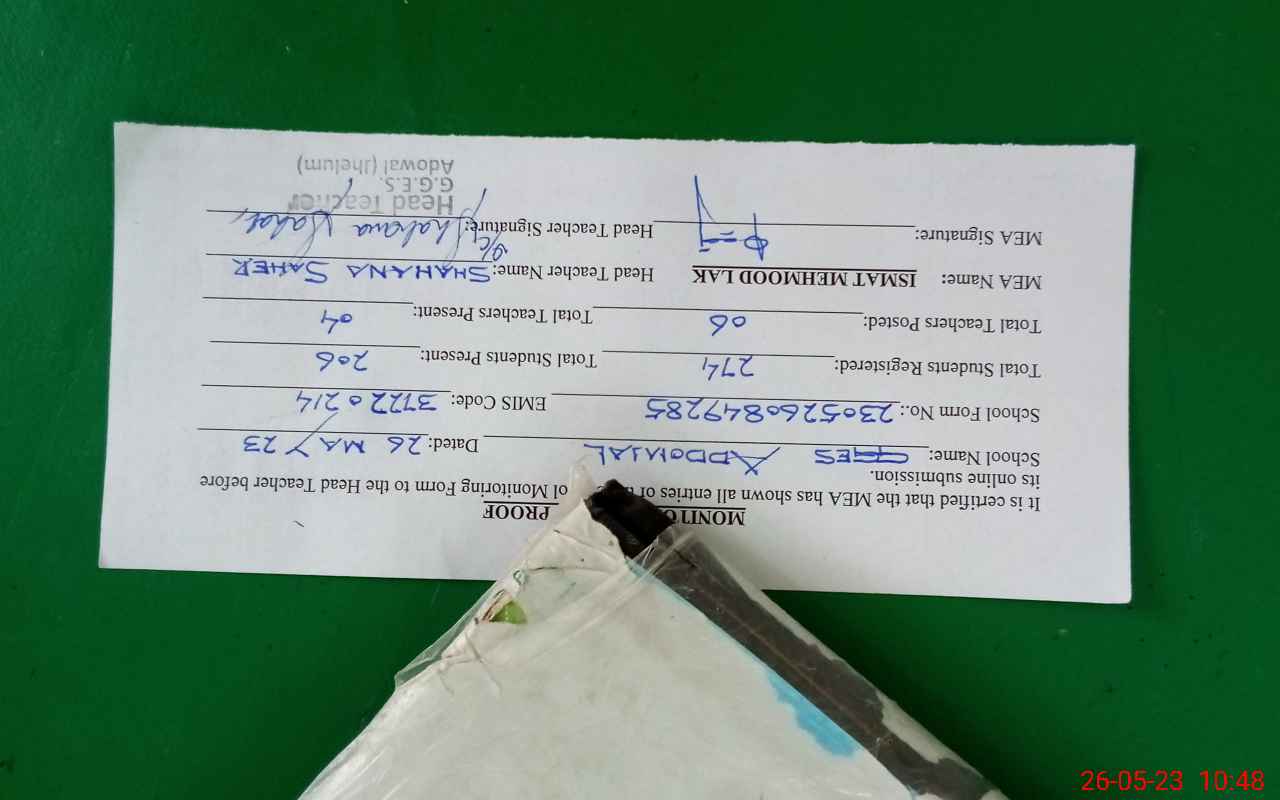 MONITO PROOF
It is certified that the MEA has shown all entries of ol Monitoring Form to the Head Teacher before
its online submission.
School Name: GGES ADDOWAL Dated: 26 MAY 23
School Form No.: 2305260849285 EMIS Code: 37220214
Total Students Registered: 274 Total Students Present: 206
Total Teachers Posted: 06 Total Teachers Present: 04
MEA Name: ISMAT MEHMOOD LAK Head Teacher Name: SHAHANA SAHER
MEA Signature: Head Teacher Signature: Shahana Sahar
Head Teacher
G.G.E.S.
Adowal (Jhelum)
26-05-23 10:48